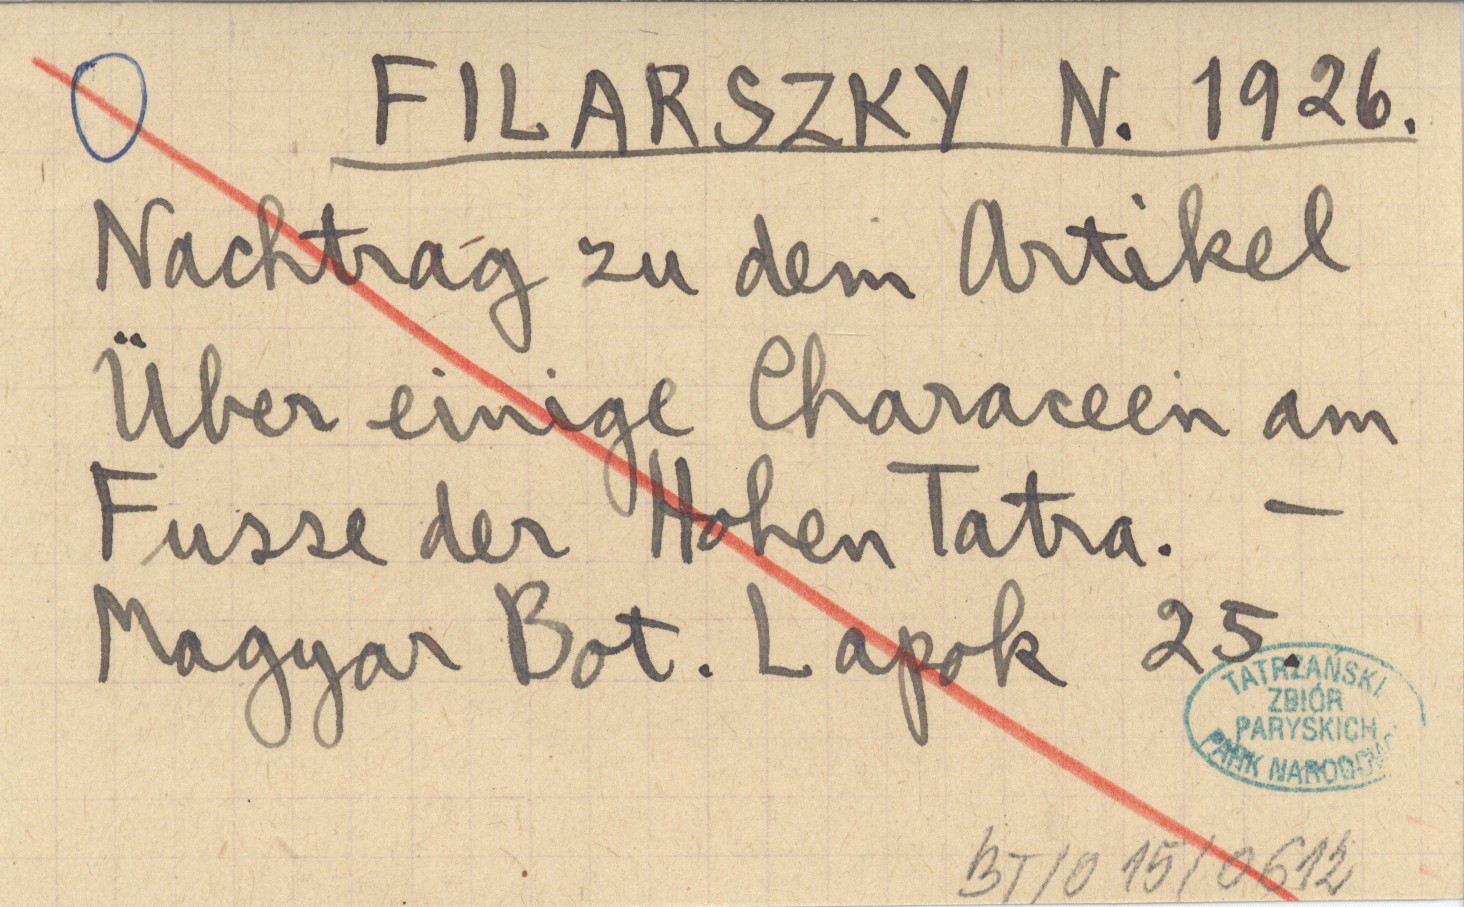 FILARSZKY N. 1926.
Nachtrag zu dem Artikel
Über einige Characeen am
Fusse der Hohen Tatra. –
Magyar Bot. Lapok 25.
TATRZAŃSKI
ZBIÓR
PARYSKICH
PARK NARODOWY
BT/0 15/0612